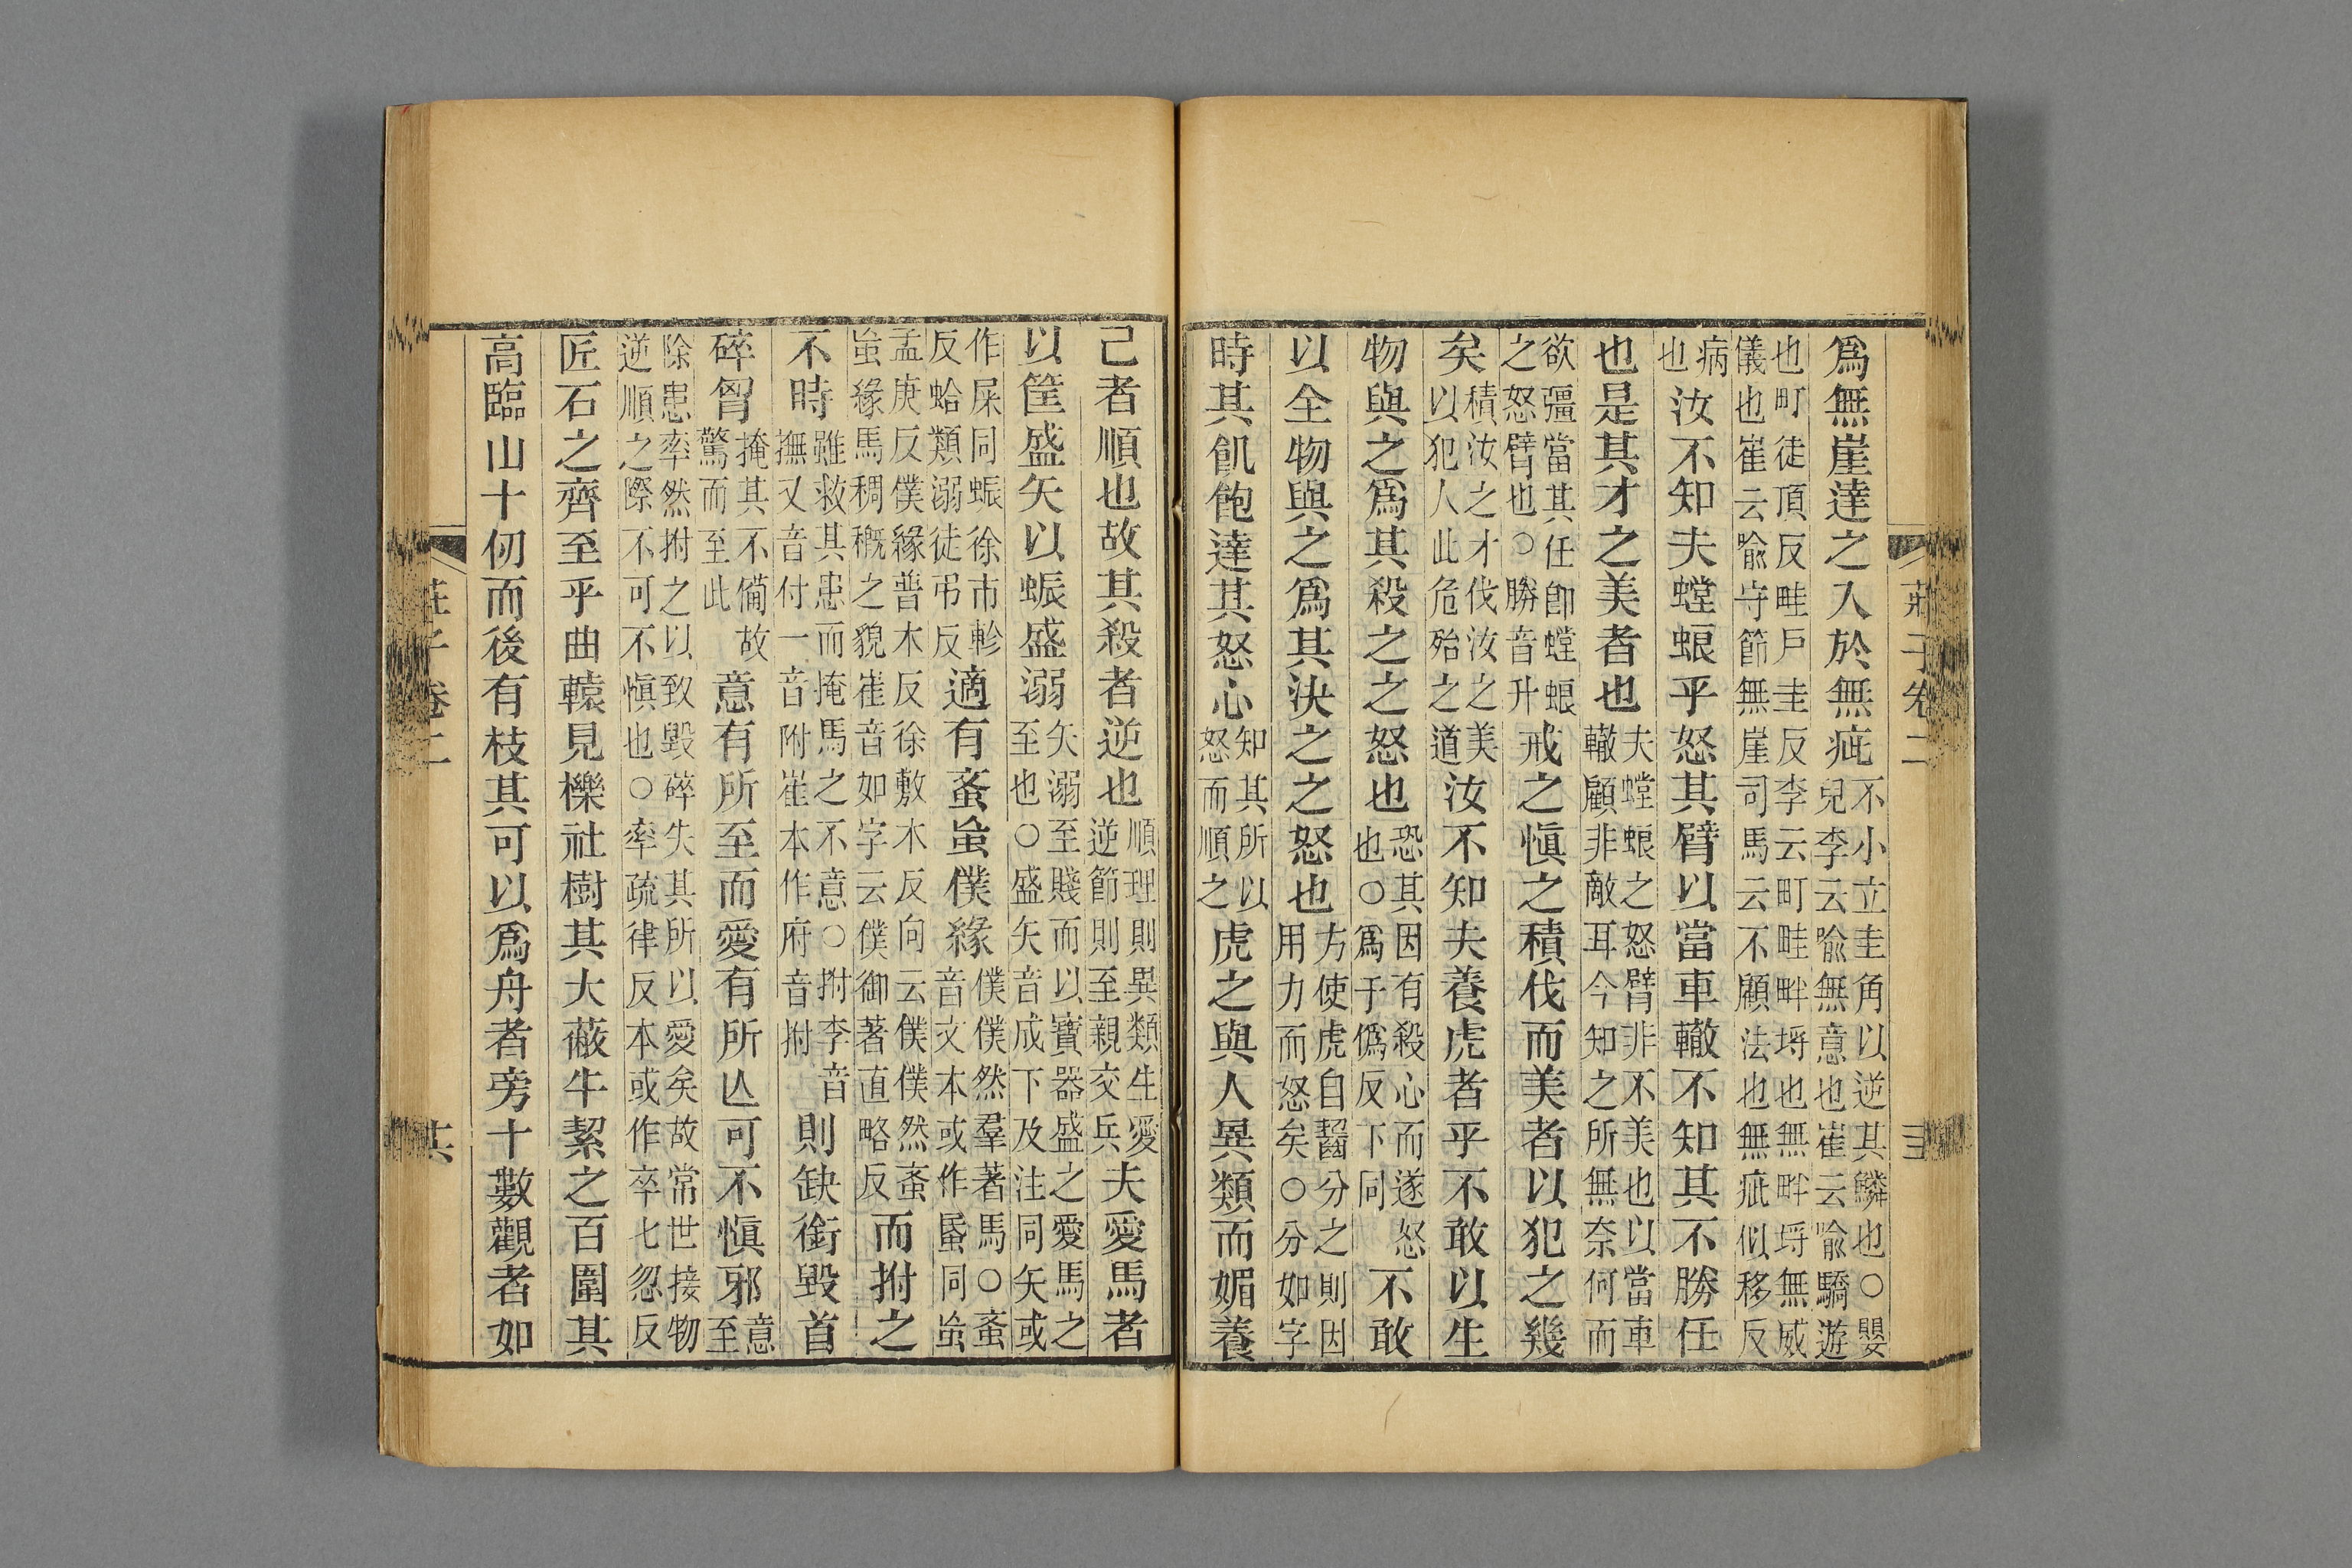 莊子卷二
爲無崖達之入於無疵不小立圭角以逆其鱗也○嬰兒李云喻無意也崔云喻驕遊
也町徒頂反畦戶圭反李云町畦畔埓也無畔埓無威儀也崔云喻守節無崖司馬云不顧法也無疵似移反
病也汝不知夫螳蜋乎怒其臂以當車轍不知其不勝任
也是其才之美者也夫螳蜋之怒臂非不美也以當車轍顧非敵耳今知之所無奈何而
欲彊當其任卽螳蜋之怒臂也○勝音升戒之愼之積伐而美者以犯之幾
矣積汝之才伐汝之美以犯人此危殆之道汝不知夫養虎者乎不敢以生
物與之爲其殺之之怒也恐其因有殺心而遂怒也○爲于僞反下同不敢
以全物與之爲其決之之怒也方使虎自齧分之則因用力而怒矣○分如字
時其飢飽達其怒心知其所以怒而順之虎之與人異類而媚養
己者順也故其殺者逆也順理則異類生愛逆節則至親交兵夫愛馬者
以筐盛矢以蜄盛溺矢溺至賤而以寶器盛之愛馬之至也○盛矢音成下及注同矢或
作屎同蜄徐市軫反蛤類溺徒弔反適有蚉䖟僕緣僕僕然羣著馬○蚉音文本或作䘇同䖟
孟庚反僕緣普木反徐敷木反向云僕僕然蚉䖟緣馬稠穊之貌崔音如字云僕御著直略反而拊之
不時雖救其患而掩馬之不意○拊李音撫又音付一音附崔本作府音拊則缺銜毀首
碎胷掩其不備故驚而至此意有所至而愛有所亾可不愼邪意至
除患率然拊之以致毀碎失其所以愛矣故常世接物逆順之際不可不愼也○率疏律反本或作卒七忽反
匠石之齊至乎曲轅見櫟社樹其大蔽牛絜之百圍其
高臨山十仞而後有枝其可以爲舟者旁十數觀者如
莊子卷二